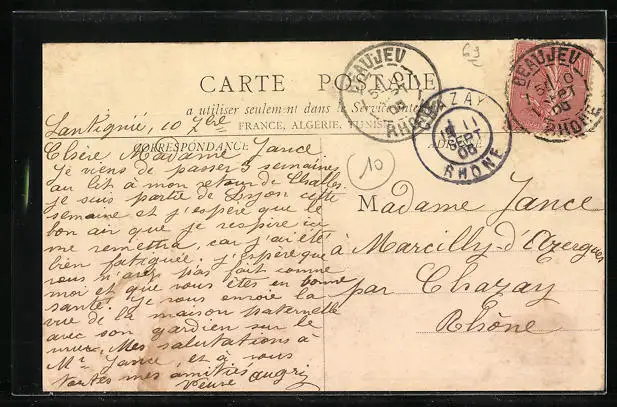 CARTE POSTALE
a utiliser seulement dans le Service intérieur
FRANCE, ALGERIE, TUNISIE
CORRESPONDANCE
Lantignié, 10 7bre
Chère Madame Jance
Je viens de passer 3 semaines
au lit à mon retour de Challes.
je suis partie de Lyon cette
semaine et j'espère que le
bon air que je respire ici
me remettra, car j'ai été
bien fatiguée. J'espère que
vous n'avez pas fait comme
moi et que vous êtes en bonne
santé. Je vous envoie la
vue de la maison paternelle
avec son gardien sur le
mur. Mes salutations à
Mr Jance, et à vous
toutes mes amitiés
veuve
BEAUJEU
RHONE
CHAZAY
11
SEPT
06
RHONE
BEAUJEU
10
SEPT
06
RHONE
10
Madame Jance
à Marcilly-d'Azergues
par Chazay
Rhône